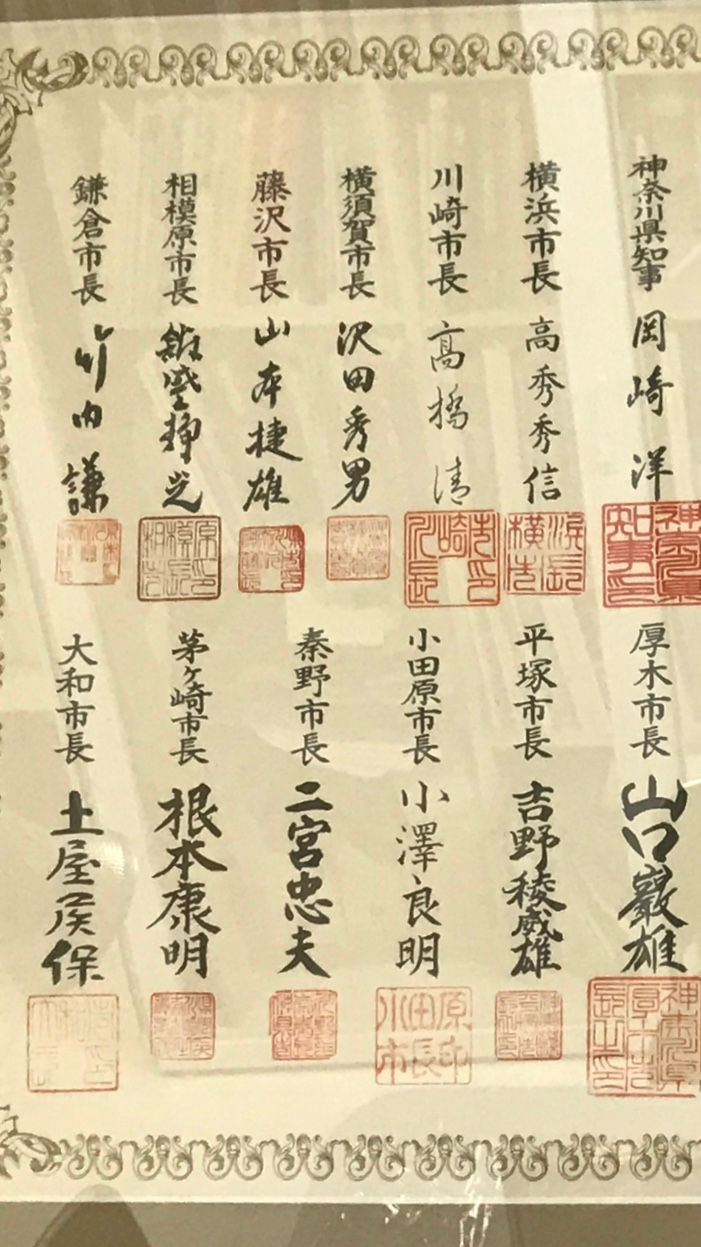 神奈川県知事 岡崎洋
横浜市長 高秀秀信
川崎市長 髙橋清
横須賀市長 沢田秀男
藤沢市長 山本捷雄
相模原市長 舘盛静光
鎌倉市長 竹内謙
厚木市長 山口巖雄
平塚市長 吉野稜威雄
小田原市長 小澤良明
秦野市長 二宮忠夫
茅ヶ崎市長 根本康明
大和市長 土屋侯保